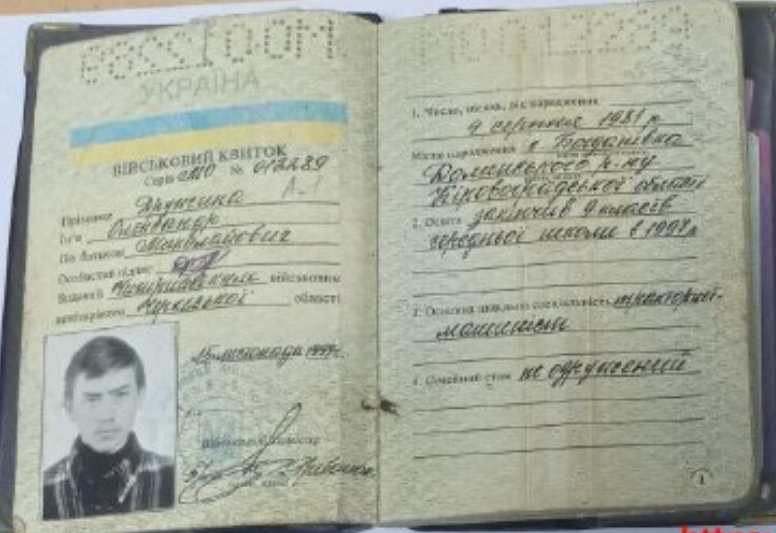 УКРАЇНА
ВІЙСЬКОВИЙ КВИТОК
Серія №
Прізвище Дружина
Ім'я Олександр
По батькові Миколайович
Особистий підпис
Виданий військовим
комісаріатом Черкаської області
15 листопада
Військовий комісар
1. Число, місяць, рік народження
9 серпня 1981 р.
Місце народження с. Богданівка
р-ну
Кіровоградської області
2. Освіта закінчив 9 класів
середньої школи в
3. Основна цивільна спеціальність тракторист-
машиніст
4. Сімейний стан не одружений
1